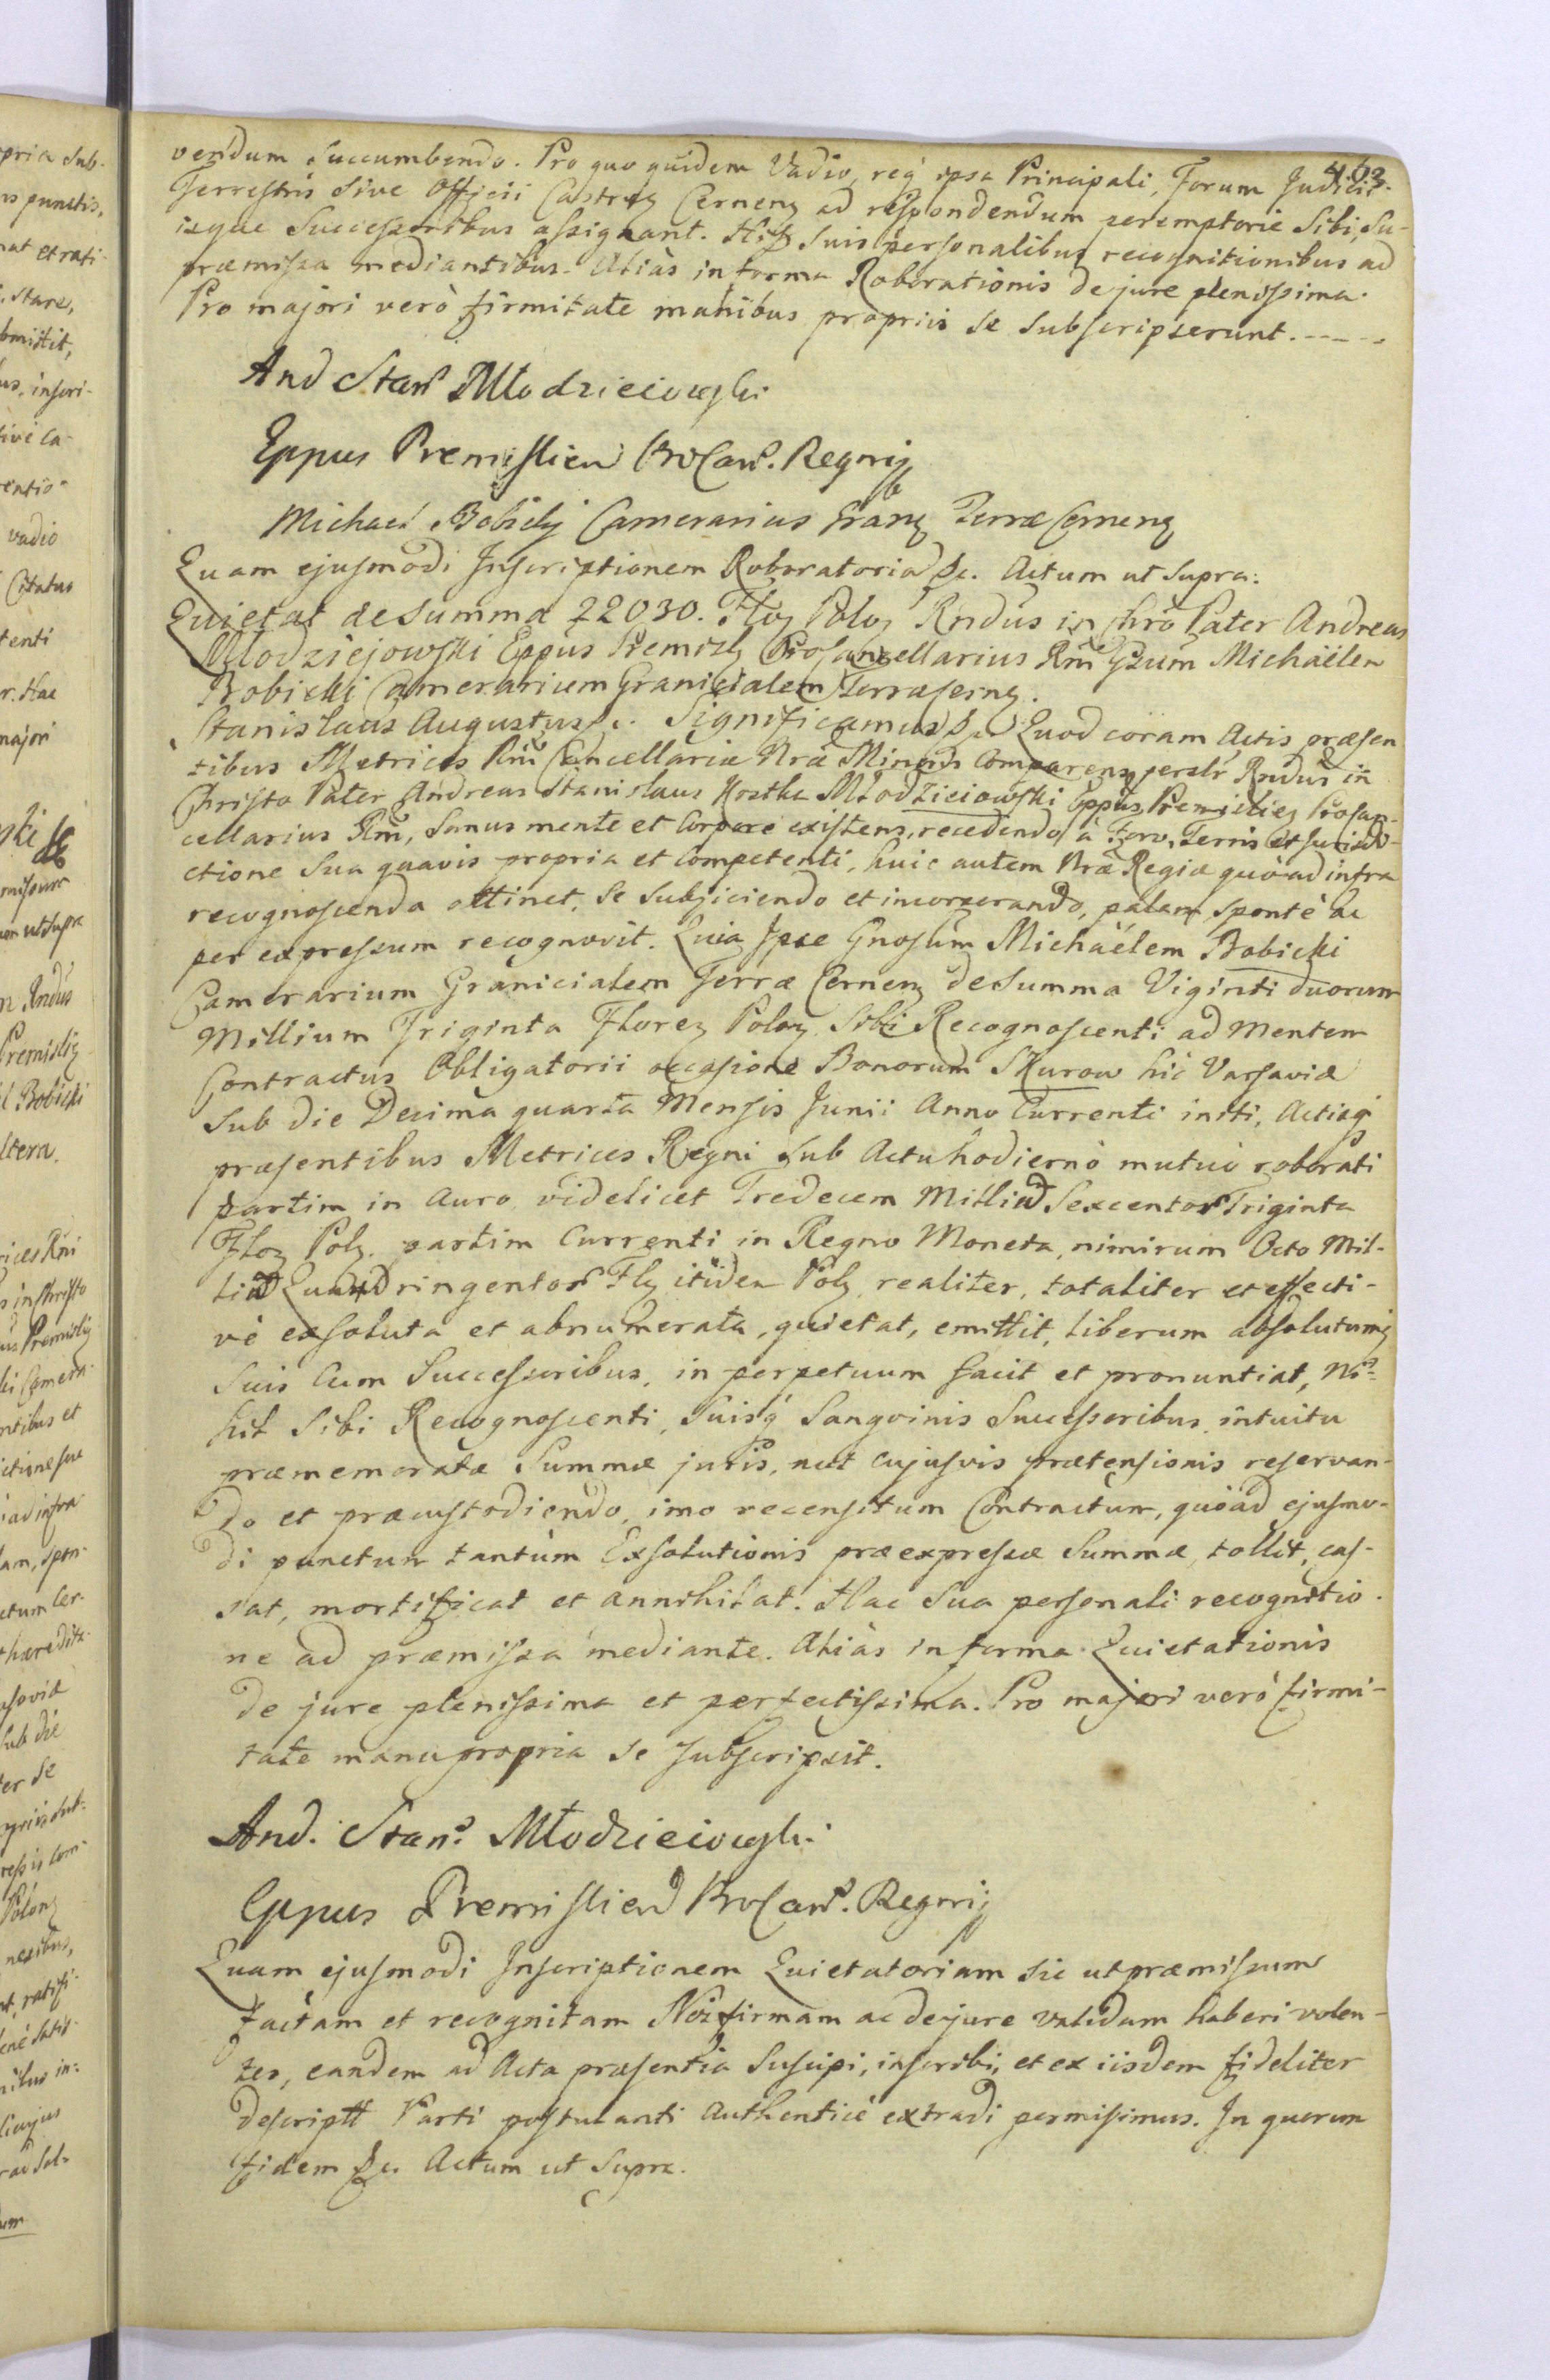 463.
veridum succumbendo. Pro quo quidem Vadio, req̄ ipsa Principali, Forum Judicii
Terrestris sive Officii Castreŋ Cerneŋ ad respondendum peremptorie Sibi, Su-
isque Successoribus assignant. Hisce suis personalibus recognitionibus ad
præmissa mediantibus. Aliàs in forma Roborationis de jure plenissima.
Pro majori verò firmitate manibus propriis se subscripserunt.
And Stan Młodzieiowski
Eppus Premislien ProCan. Regni
Michael Bobicki Camerarius Granz Terræ Cernenz
Quam ejusmodi Inscriptionem Roboratoria &c. Actum ut supra.
Quietat de Summa 22030. Floz Poloz Rndus in Chrō Pater Andreas
Młodziejowski Eppus Premisl ProCancellarius Rni Gsum Michaëlem
Bobicki Camerarium Granicialem Terræ Cernz.
Stanislaus Augustus &c. Significamus &c. Quod coram Actis præsen
tibus Metrices Rni Cancellariæ Nræ Minoris Comparens persłr Rndus in
Christo Pater Andreas Stanislaus Kostka Młodzieiowski Eppus Premisliez Procan-
cellarius Rni, Sanus mente et Corpore existens, recedendo à Foro, Terris et Jurisdi-
ctione Sua quavis propria et Competenti, huic autem Nræ Regiæ quò ad infra
recognoscenda attinet, se subjiciendo et incorporando, palam, spontè ac
per expressum recognovit. Quia Ipse Gnosum Michaëlem Bobicki
Camerarium Granicialem Terræ Cernenz de Summa Viginti duorum
Millium Triginta Florez Poloz Sibi Recognoscenti ad mentem
Contractus Obligatorii occasione Bonorum Skurow hic Varsaviæ
Sub die Decima quarta Mensis Junii Anno Currenti initi, Actisq̄
præsentibus Metrices Regni sub Actu hodierno mutuò roborati
partim in Auro videlicet Tredecem Millium Sexcentor Triginta
Floz Polz. partim Currenti in Regno Moneta, nimirum Octo Mil-
lium Quadringentor Flz itidem Polz realiter, totaliter et effecti-
vè exsoluta et abnumerata, quietat, emittit, liberum absolutumq
Suis Cum Successoribus, in perpetuum facit et pronuntiat, Ni-
hil Sibi Recognoscenti, Suisq̄ Sangvinis Successoribus intuitu
præmemoratæ Summæ juris, aut cujusvis prætensionis reservan-
do et præcustodiendo, imo recensitum Contractum, quò ad ejusmo-
di punctum tantùm Exsolutionis præexpressæ Summæ, tollit, cas-
sat, mortificat et annihilat. Hac Sua personali recognitio-
ne ad præmissa mediante. Aliàs in forma Quietationis
de jure plenissima et perfectissima. Pro majori verò firmi-
tate manu propria se subscripsit.
And. Stan. Młodzieiowski
Eppus Premislien ProCan. Regni
Quam ejusmodi Inscriptionem Quietatoriam sic ut præmissum
factam et recognitam Nos firmam ac de jure validam haberi volen-
tes, eandem ad Acta præsentia Suscipi, inscribi, et ex iisdem fideliter
descriptt Parti postulanti Authenticè extradi permisimus. In quorum
fidem &c. Actum ut Supra.